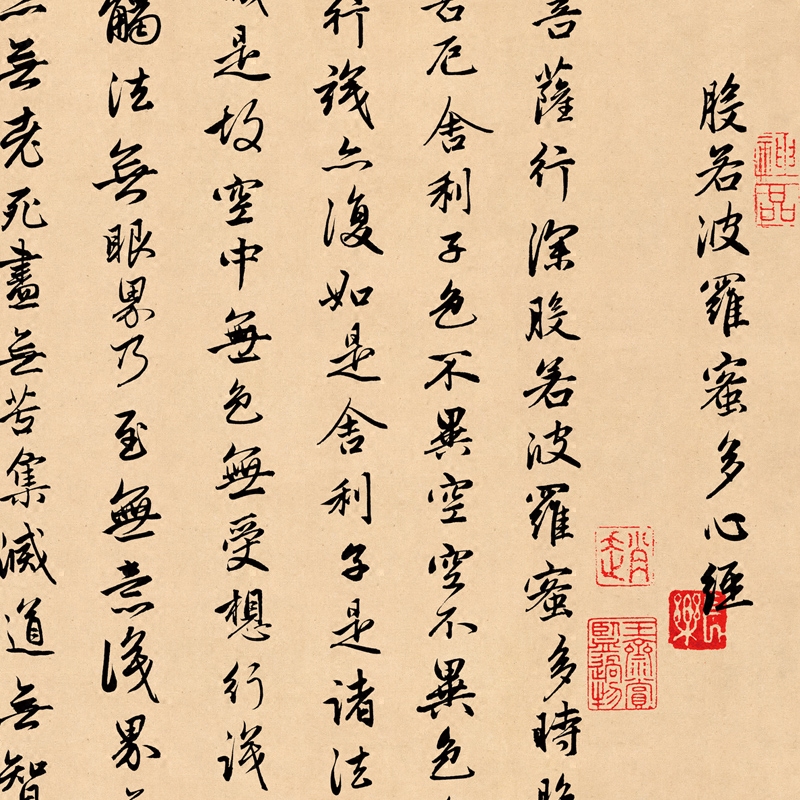 般若波羅蜜多心經
菩薩行深般若波羅蜜多時
苦厄舍利子色不異空空不異色
行識亦復如是舍利子是諸法
滅是故空中無色無受想行識
觸法無眼界乃至無意識界
無老死盡無苦集滅道無智